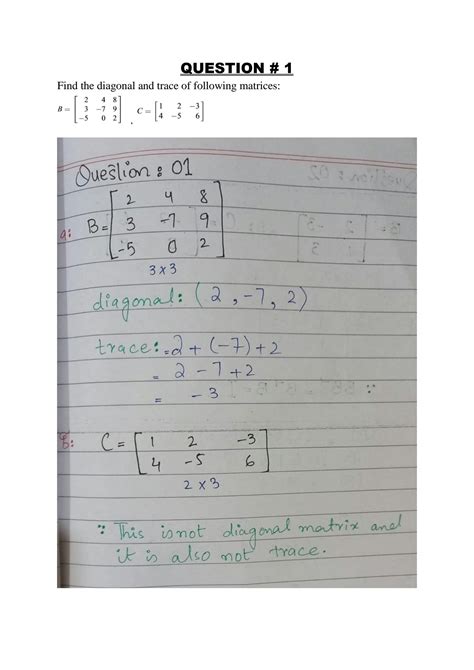 QUESTION # 1
Find the diagonal and trace of following matrices:
B = [ 2 4 8
3 -7 9
-5 0 2 ] , C = [ 1 2 -3
4 -5 6 ]
Question : 01
a: B = [ 2 4 8
3 -7 9
-5 0 2 ]
3 x 3
diagonal: ( 2 , -7 , 2 )
trace: = 2 + (-7) + 2
= 2 - 7 + 2
= - 3
b: C = [ 1 2 -3
4 -5 6 ]
2 x 3
∵ This is not diagonal matrix and
it is also not trace.